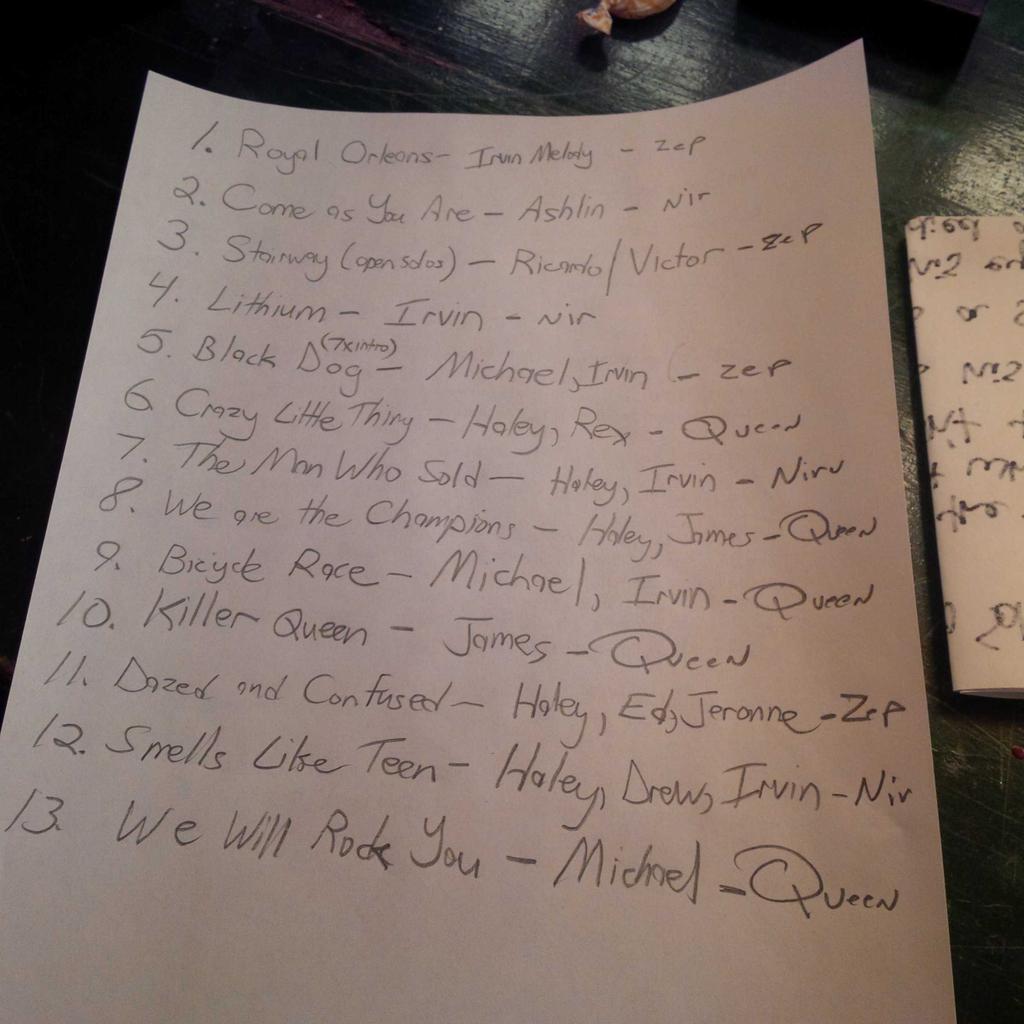 1. Royal Orleans - Irvin Melody - Zep
2. Come as You Are - Ashlin - Nir
3. Stairway (open solos) - Ricardo/Victor - Zep
4. Lithium - Irvin - Nir
5. Black Dog (7x intro) - Michael, Irvin - Zep
6. Crazy Little Thing - Haley, Rex - Queen
7. The Man Who Sold - Haley, Irvin - Nirv
8. We are the Champions - Haley, James - Queen
9. Bicycle Race - Michael, Irvin - Queen
10. Killer Queen - James - Queen
11. Dazed and Confused - Haley, Ed, Jeronne - Zep
12. Smells Like Teen - Haley, Drew, Irvin - Nir
13. We Will Rock You - Michael - Queen
No2
or
No2